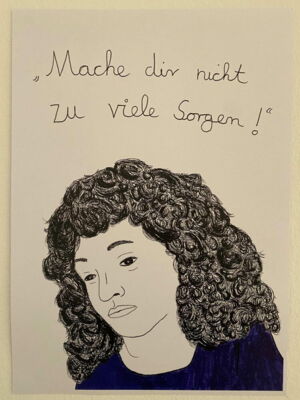 „Mache dir nicht
zu viele Sorgen!“